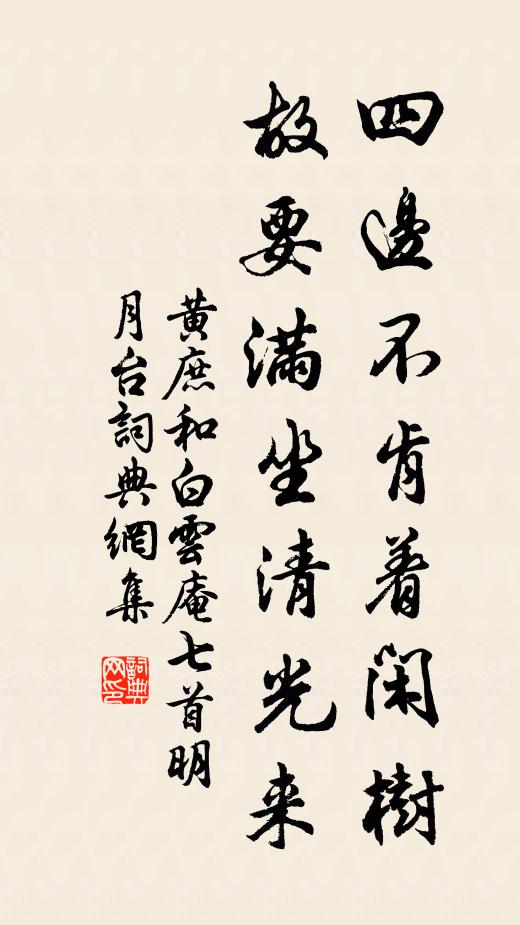 四邊不肯着閑樹
故要滿坐清光来
黃庶和白雲庵七首明
月台詞典網集
詞典
网印